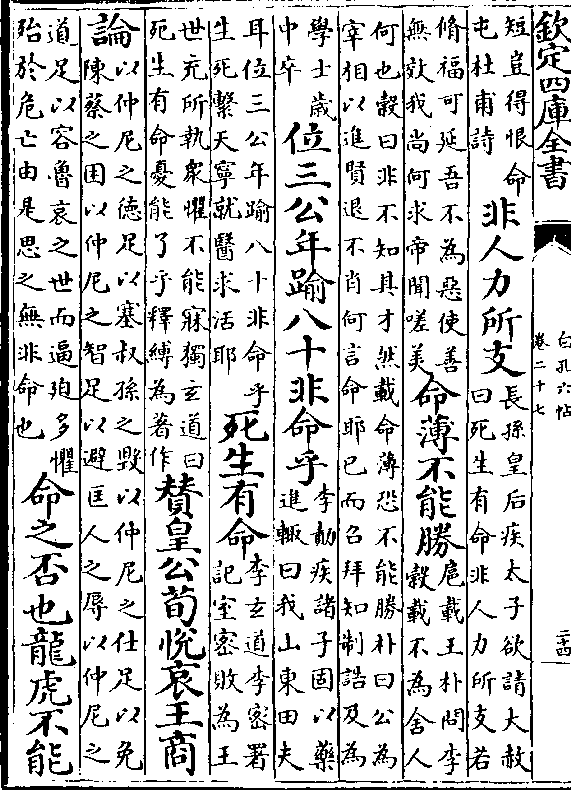 欽定四庫全書
白孔六帖
卷二十七
二十四
短豈得恨命
屯杜甫詩
非人力所支
長孫皇后疾太子欲請大赦
曰死生有命非人力所支若
脩福可延吾不為惡使善
無效我尚何求帝聞嗟美
命薄不能勝
扈載王朴問李
穀載不為舍人
何也穀曰非不知其才然載命薄恐不能勝朴曰公為
宰相以進賢退不肖何言命耶已而召拜知制誥及為
學士歲
中卒
位三公年踰八十非命乎
李勣疾諸子固以藥
進輙曰我山東田夫
耳位三公年踰八十非命乎
生死繫天寧就醫求活耶
死生有命
李玄道李密署
記室密敗為王
世充所執衆懼不能寐獨玄道曰
死生有命憂能了乎釋縛為著作
贊皇公荀悅哀王商
論
以仲尼之德足以塞叔孫之毁以仲尼之仕足以免
陳蔡之困以仲尼之智足以避匡人之辱以仲尼之
道足以容魯哀之世而逼多懼
殆於危亡由是思之無非命也
命之否也龍虎不能